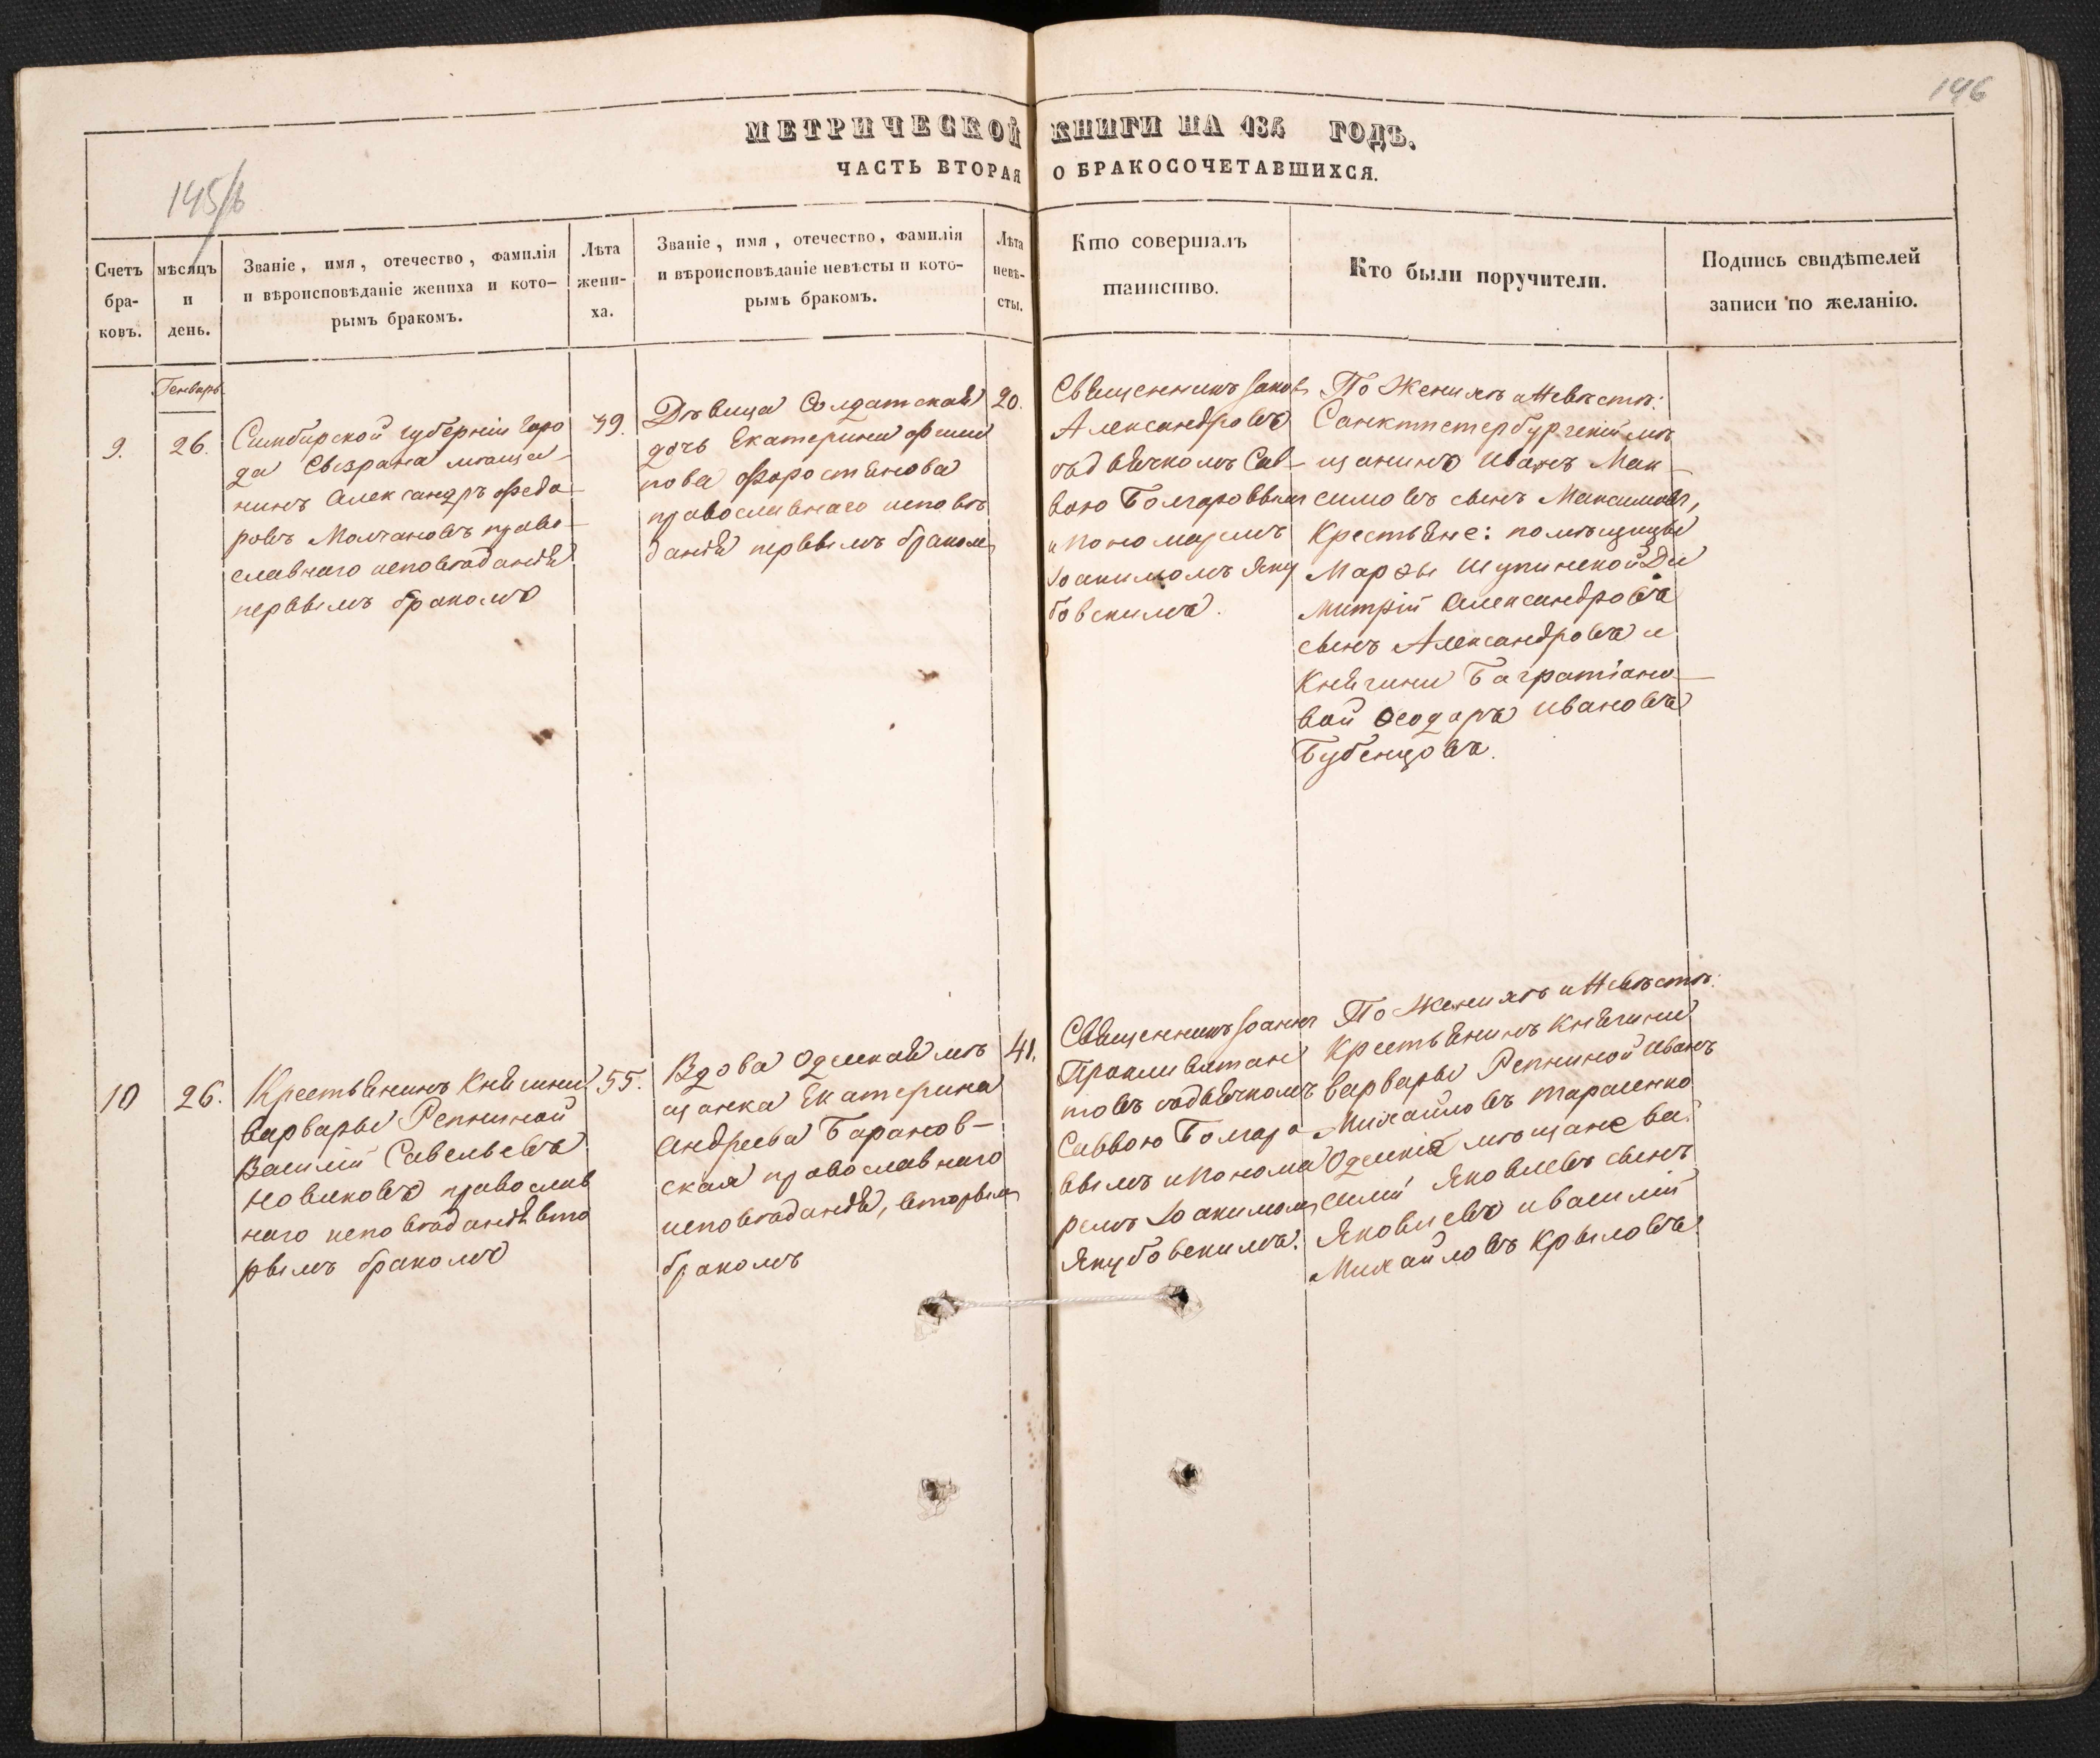 146
МЕТРИЧЕСКОЙ КНИГИ НА 184 ГОДЪ.
ЧАСТЬ ВТОРАЯ О БРАКОСОЧЕТАВШИХСЯ.
145/б
Счетъ
бра-
ковъ.
мѣсяцъ
и
день.
Званіе, имя, отечество, фамилія
и вѣроисповѣданіе жениха и кото-
рымъ бракомъ.
Лѣта
жени-
ха.
Званіе, имя, отечество, фамилія
и вѣроисповѣданіе невѣсты и кото-
рымъ бракомъ.
Лѣта
невѣ-
сты.
Кто совершалъ
таинство.
Кто были поручители.
Подпись свидѣтелей
записи по желанію.
Генварь
9.
26.
Симбирской губерніи Горо
да Сызрана мѣща-
нинъ Александръ Федо-
ровъ Молчановъ право-
славнаго исповѣданія
первымъ бракомъ
39.
Дѣвица Солдатская
дочь Екатерина Фили
пова Форостянова
православнаго исповѣ
данія первымъ бракомъ
20.
Священникъ Іаковъ
Александровъ
съ дьячкомъ Сав-
вою Болгаровымъ
и пономаремъ
Іоакимомъ Яку
бовскимъ.
По Женихѣ и Невѣстѣ:
Санктпетербургскій мѣ
щанинъ Иванъ Мак-
симовъ сынъ Максимовъ,
Крестьяне: помѣщицы
Марѳы Шупинской Ди
митрій Александровъ
сынъ Александровъ и
Княгини Багратіано-
вой Ѳеодоръ Ивановъ
Бубенцовъ.
10
26.
Крестьянинъ Княгини
Варвары Репниной
Василій Савельевъ
Новиковъ православ
наго исповѣданія вто
рымъ бракомъ
55.
Вдова Одесская мѣ
щанка Екатерина
Андреева Баранов-
ская православнаго
исповѣданія, вторымъ
бракомъ
41.
Священникъ Іоаннъ
товъ съ дьячкомъ
Саввою Болгаро
вымъ и понома
ремъ Іоакимомъ
Якубовскимъ.
По Женихѣ и Невѣстѣ:
Крестьянинъ Княгини
Варвары Репниной Иванъ
Михайловъ Тарасенко
Одесскіе мѣщане Ва
силій Яковлевъ сынъ
Яковлевъ и Василій
Михайловъ Крыловъ.